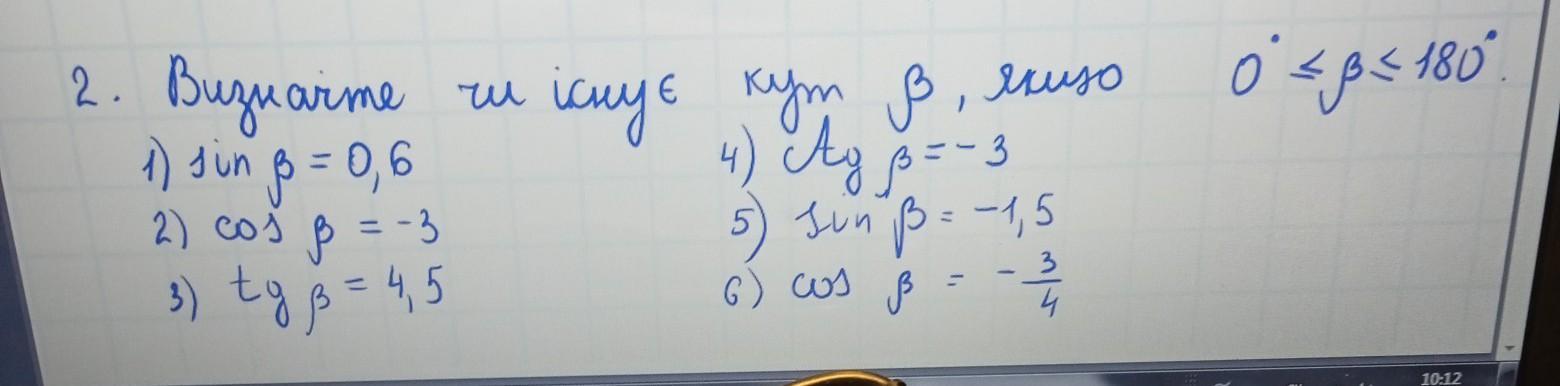 2. Визначте чи існує кут β, якщо 0° ≤ β ≤ 180°.
1) sin β = 0,6
2) cos β = -3
3) tg β = 4,5
4) ctg β = -3
5) sin β = -1,5
6) cos β = - 3/4
10:12